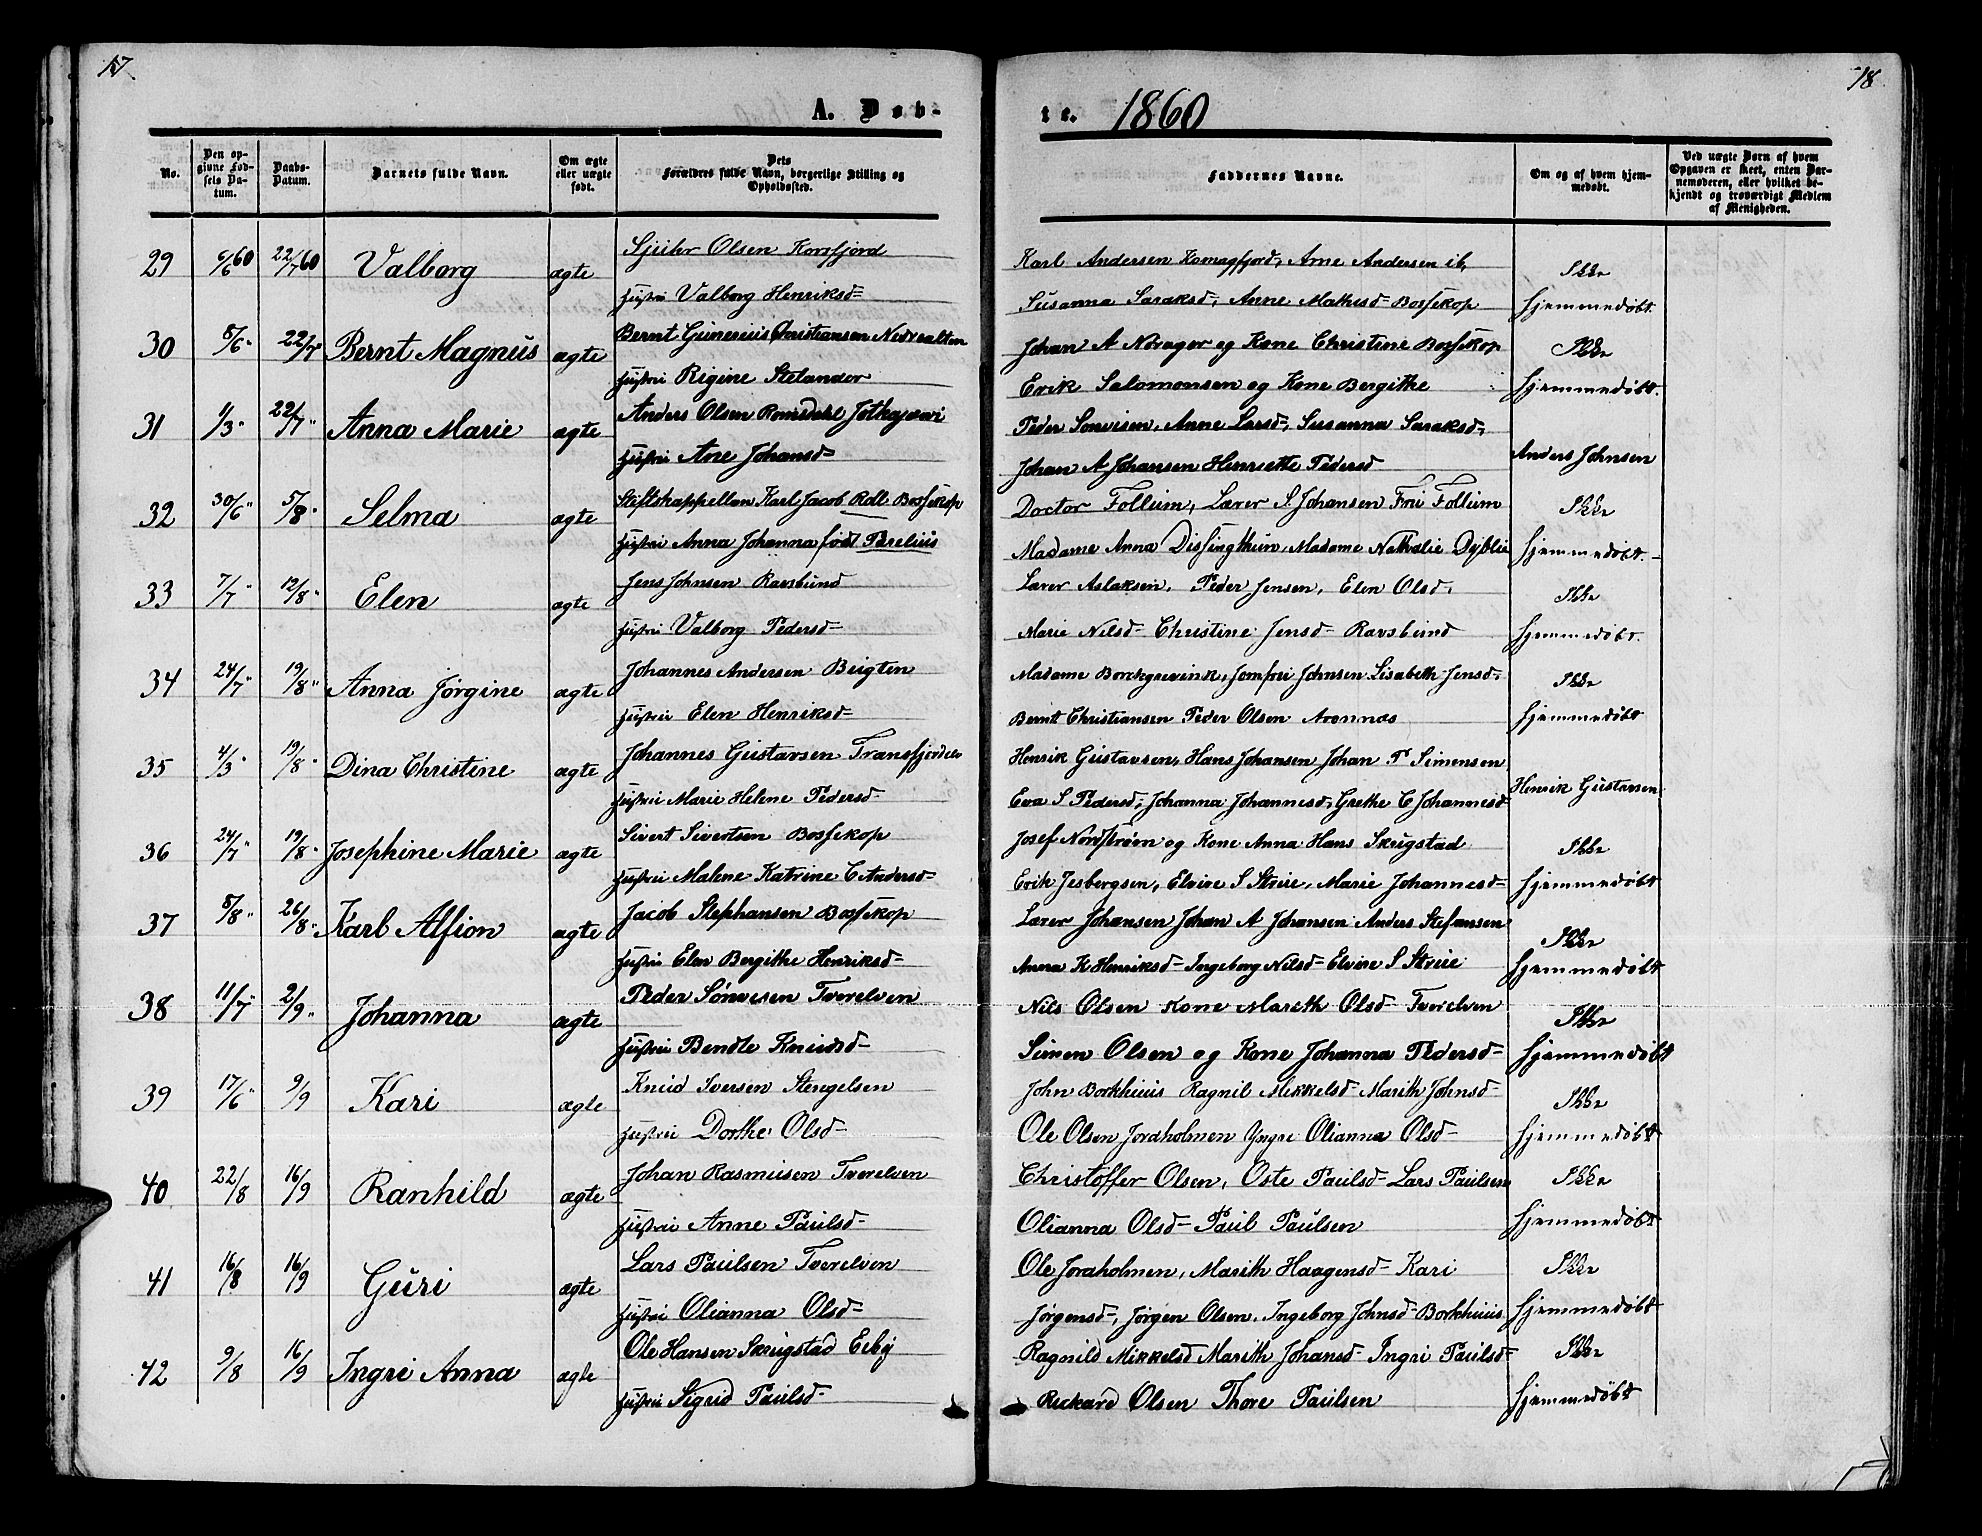 17
18
A. Døb-
te. 1860
No.
Den op-
givne Fød-
sels Da-
tum.
Daabs-
Datum.
Barnets fulde Navn.
Om ægte
eller uægte
født.
Dets
Forældres fulde Navn, borgerlige Stilling og
Opholdssted.
Faddernes Navne.
Om og af hvem hjem-
medøbt.
Ved uægte Børn af hvem
Opgaven er skeet, enten Bar-
nemoderen, eller hvilket be-
kjendt og troværdigt Medlem
af Menigheden.
29 6/6 60 22/7 60 Valborg ægte Sjuhr Olsen Korsfjord
Hustru Valborg Henriksd-
Karl Andersen Komagfjord, Arne Andersen ib,
Susanna Saraksd, Anne Mathisd- Bossekop
Ikke
hjemmedøbt.
30 8/6 " 22/7 " Bernt Magnus ægte Bernt Gunerius Christiansen Nedrealten
Hustru Rigine Stelander
Johan A Norager og Kone Christine Bossekop
Erik Salomonsen og Kone Bergithe
Ikke
hjemmedøbt.
31 1/3 " 22/7 " Anna Marie ægte Anders Olsen Romsdahl Jotkajavri
Hustru Ane Johansd-
Peder Sonvisen, Anne Larsd, Susanna Saraksd,
Johan A Johansen Henriette Pedersd
Anders Johnsen
32 30/6 " 5/8 " Selma ægte Stiftskappellan Karl Jacob Roll Bossekop
Hustru Anna Johanna født Parelius
Doctor Follum, Lærer S. Johansen Fru Follum
Madame Anna Dissingthun, Madame Nathalie Dyblie
Ikke
hjemmedøbt.
33 7/7 " 12/8 " Elen ægte Jens Johnsen Ravsbund
Hustru Valborg Pedersd-
Lærer Aslaksen, Peder Jensen, Elen Olsd,
Marie Nilsd- Christine Jensd- Ravsbund
Ikke
hjemmedøbt.
34 24/7 " 19/8 " Anna Jørgine ægte Johannes Andersen Bugten
Hustru Elen Henriksd-
Madame Borchgrevink, Jomfru Johnsen Lisabeth Jensd,
Bernt Christiansen Peder Olsen Aronnæs
Ikke
hjemmedøbt
35 4/3 " 19/8 " Dina Christine ægte Johannes Gustavsen Transfjordels
Hustru Marie Helene Pedersd-
Henrik Gustavsen, Hans Johansen Johan P Simensen
Eva S Pedersd, Johanna Johannesd, Grethe C Johannesd
Henrik Gustavsen
36 24/7 " 19/8 " Josephine Marie ægte Sivert Sivertsen Bossekop
Hustru Malene Katrine C Andersd-
Josef Nordstrøm og Kone Anna Hans Skrugstad
Erik Jesbergsen, Elvire S Strie, Marie Johannesd-
Ikke
hjemmedøbt
37 8/8 " 26/8 " Karl Alfion ægte Jacob Stephansen Bossekop
Hustru Elen Bergithe Henriksd-
Lærer Johansen Johan A Johansen Anders Stefansen
Anna K Henriksd- Ingeborg Nilsd- Elvire S Strie
Ikke
hjemmedøbt
38 11/7 " 2/9 " Johanna ægte Peder Sønvesen Tverelven
Hustru Bendte Knudsd-
Nils Olsen Kone Marith Olsd- Tverelven
Simen Olsen og Kone Johanna Pedersd-
Ikke
hjemmedøbt
39 17/6 " 9/9 Kari ægte Knud Iversen Stengelsen
Hustru Dorthe Olsd-
John Borkhuus Ragnil Mikkelsd- Marith Johnsd-
Ole Olsen Jordholmen Yngri Olianna Olsd-
Ikke
hjemmedøbt
40 22/8 16/9 Ranhild ægte Johan Rasmusen Tverelven
Hustru Anne Paulsd-
Christoffer Olsen, Oste Paulsd- Lars Paulsen
Olianna Olsd- Paul Paulsen
Ikke
hjemmedøbt
41 16/8 16/9 Guri ægte Lars Paulsen Tverelven
Hustru Olianna Olsd-
Ole Jordholmen, Marith Haagensd- Kari
Jørgensd, Jørgen Olsen, Ingeborg Johnsd- Borkhuus
Ikke
hjemmedøbt
42 9/8 16/9 Ingri Anna ægte Ole Hansen Skrugstad Eiby
Hustru Sigrid Paulsd-
Ragnild Mikkelsd Marith Johansd- Ingri Paulsd-
Rickard Olsen Thore Paulsen
Ikke
hjemmedøbt